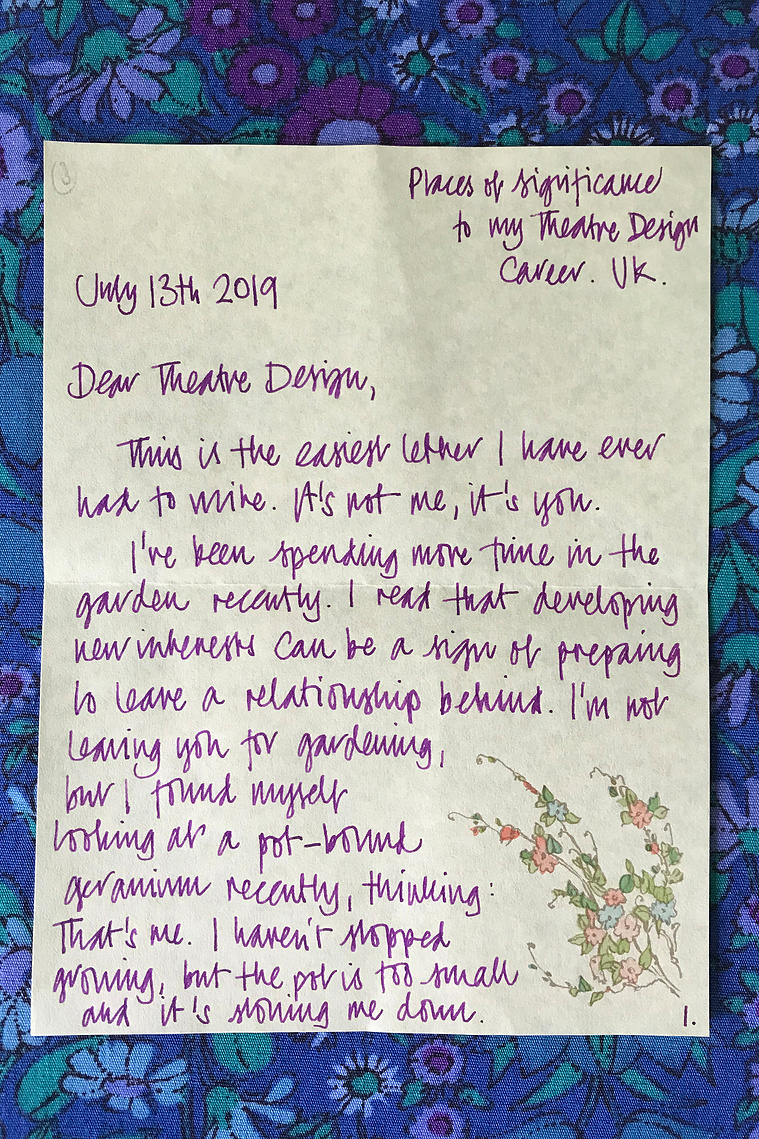 3
Places of significance
to my Theatre Design
Career. UK.
July 13th 2019
Dear Theatre Design,
This is the easiest letter I have ever
had to write. It's not me, it's you.
I've been spending more time in the
garden recently. I read that developing
new interests can be a sign of prepaing
to leave a relationship behind. I'm not
leaving you for gardening,
but I found myself
looking at a pot-bound
geranium recently, thinking:
That's me. I haven't stopped
growing, but the pot is too small
and it's slowing me down.
1.